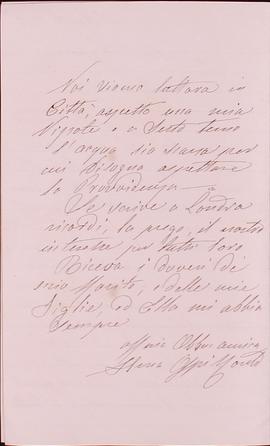 Noi siamo tuttora in
Città, aspetto una mia
Nipote e a Sesto temo
l'acqua sia scarsa per
cui bisogna aspettare
la Provvidenza —
Se scrive a Londra
ricordi, la prego, il nostro
per tutti loro
Riceva i doveri di
mio Marito, e delle mie
Figlie, ed Ella mi abbia
sempre